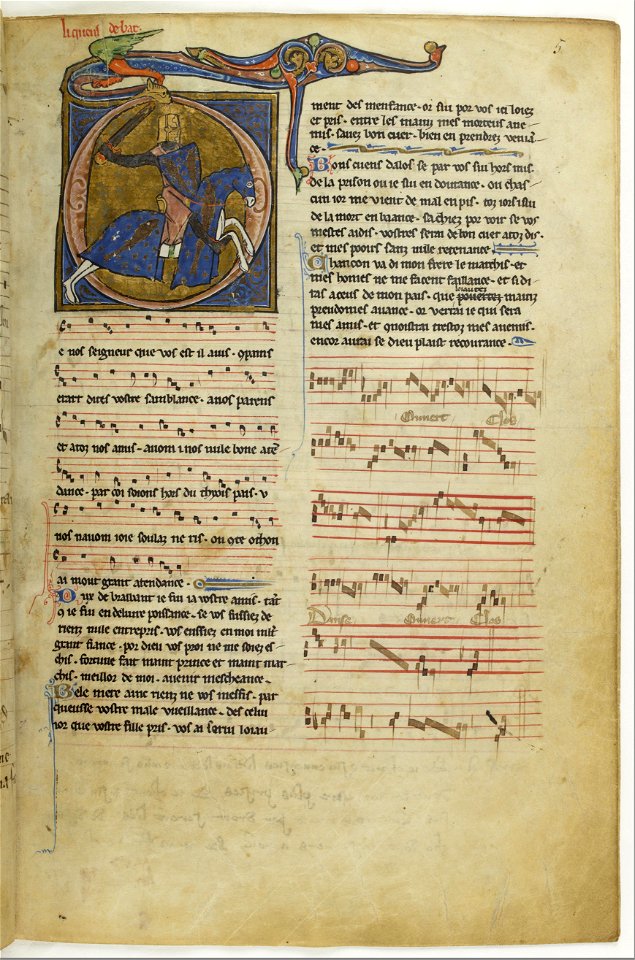 li quens de bar.
5
e nos seigneur que vos est il auis. quanis
et atoz nos amis. auom i nos nule bone atē
dance. par coi soions hors du thyois pais. v
nos nauom ioie soulaz ne ris. ou gte othon
ai mout grant atendance.
Dux de braibant ie fui ia vostre amis. tāt
q̄ ie fui en deliure poissance. se vos fussiez de
riens nule entrepris. vos eussiez en moi mlt
grant fiance. por dieu vos proi ne me soiez es
chis. fortune fait maint prince et maint mar
chis. meillor de moi. auenir mescheance.
Bele mere ainc riens ne vos meffis. par
queusse vostre male vueillance. des celui
ior que vostre fille pris. vos ai serui loiau
ment des menfance. or sui por vos ici loiez
et pris. entre les mains mes morteus ane
mis. sauez bon cuer. bien en prendrez veniā
ce.
Bons cuens dalos se par vos sui hors mis.
de la prison ou ie sui en doutance. ou chas
cun ior me vient de mal en pis. toz iors sui
de la mort en baance. sachiez por voir se vos
mestes aidis. vostres serai de bon cuer atoz dis.
et mes pooirs sanz nulle retenance.
Chancon va di mon frere le marchis. et
mes homes ne me facent faillance. et si di
ras a ceus de mon pais. que
loiautez
pouertez mainz
preudomes auance. or verrai ie qui sera
mes amis. et quoistrai trestoz mes anemis.
encor aurai se dieu plaist recourance.
Ouuert Clos
Danse Ouuert Clos